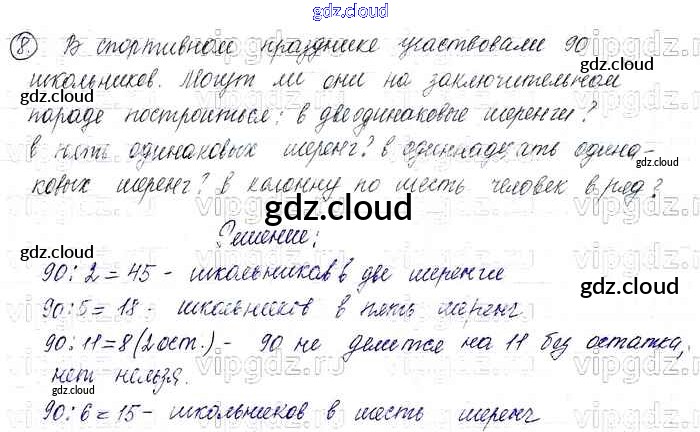 gdz.cloud
8. В спортивном празднике участвовали 90
школьников. Могут ли они на заключительном
gdz.cloud gdz.cloud
параде построиться: в две одинаковые шеренги?
в пять одинаковых шеренг? в одиннадцать одина-
gdz.cloud
ковых шеренг? в колонну по шесть человек в ряд?
gdz.cloud
Решение:
gdz.cloud
90:2=45 - школьников в две шеренги
gdz.cloud
90:5=18 - школьников в пять шеренг.
90:11=8(2ост.) - 90 не делится на 11 без остатка,
gdz.cloud
нет нельзя.
gdz.cloud
90:6=15 - школьников в шесть шеренг
gdz.cloud